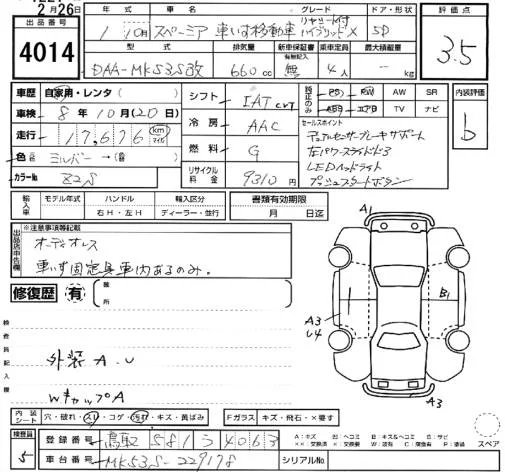 2月26日
出品番号
4014
年式 車名 グレード ドア・形状
1 10月 スペーシア 車いす移動車 リヤシート付 ハイブリッドX 5D
型式 排気量 新車保証書 有無記入 乗車定員 最大積載量
DAA-MK53S改 660cc 無 4人 - kg
評価点
3.5
車歴 自家用・レンタ( )
車検 8年10月(20日)
走行 17,676 km マイル
色 元色 シルバー → (現色 )
カラーNo Z2S
シフト IAT CVT
冷房 AAC
燃料 G
リサイクル料金 9310円
純正のみ PS PW AW SR
ABS エアB TV ナビ
内装評価
b
セールスポイント
デュアルセンサーブレーキサポート
左パワースライドドア
LEDヘッドライト
プッシュスタートボタン
輸入車 モデル年式 ハンドル 輸入区分 書類有効期限
年 右H・左H ディーラー・並行 月 日迄
出品店申告欄 ※注意事項等記載
オーディオレス
車いす固定具車内あるのみ。
修復歴 有 箇所
検査員記入欄
外装 A.U
WキャップA
A1
A3
U4
1
B1
A3
内装シート 穴・破れ・スレ・コゲ・汚れ・キズ・黄ばみ Fガラス キズ・飛石・×要す
検査員 5
登録番号 鳥取 581 う 4063
車台番号 MK53S-229178
シリアルNo
A:キズ U:ヘコミ B:キズ&ヘコミ S:サビ
XX:交換済 X:要交換 W:波有 C:腐食有 P:塗装
スペア